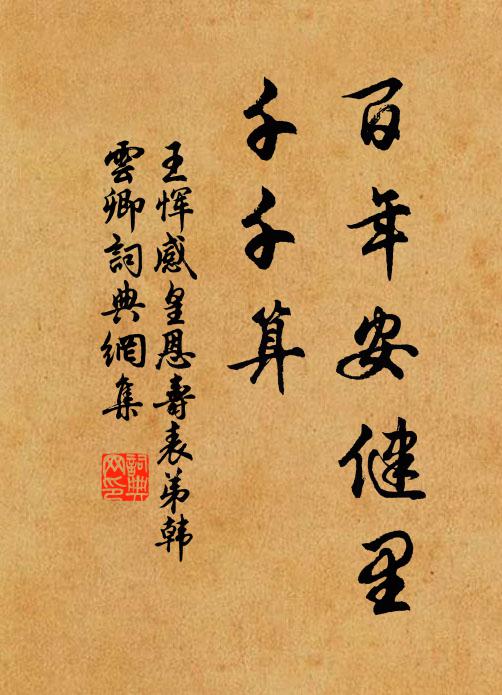 百年安健里
千千算
王恽感皇恩壽表弟韩
雲卿詞典網集
詞典
网印